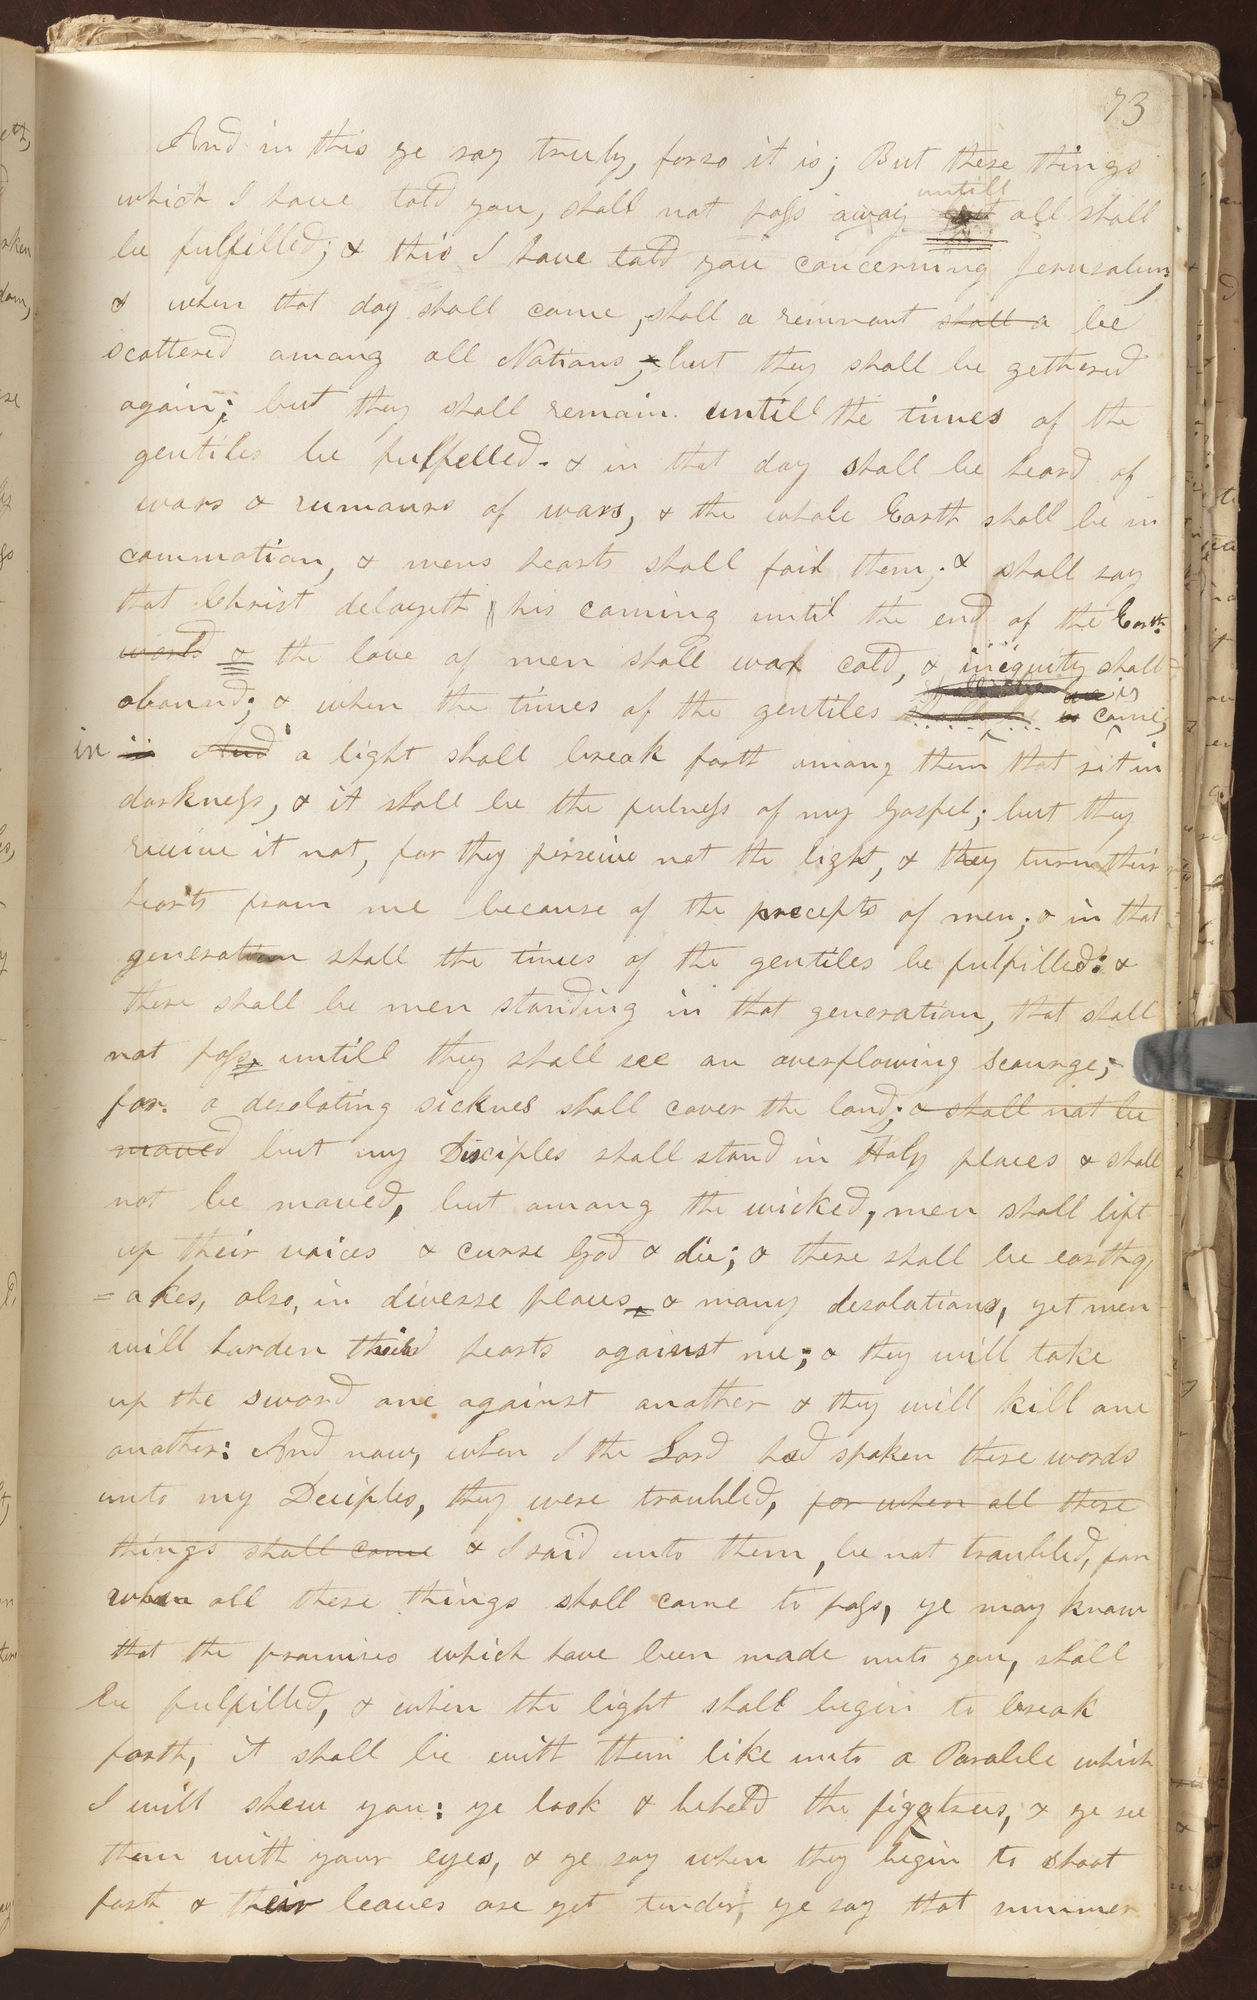 73
And in this ye say truly, for so it is; But these things
which I have told you, shall not pass away untill all shall
be fulfelled; & this I have told you concerning Jerusalum,
& when that day shall come, shall a remnant shall a be
scattered among all Nations, & but they shall be gethered
again; but they shall remain untill the times of the
gentiles be fulfelled. & in that day shall be heard of
wars & rumours of wars, & the whole Earth shall be in
commotion, & mens hearts shall fail them; & shall say
that Christ delayeth his coming until the end of the Earth
world & the love of men shall wax cold, & inequity shall
abound; & when the times of the gentiles is come,
in And a light shall break forth among them that sit in
darkness, & it shall be the fulness of my Gospel; but they
receive it not, for they perseive not the light, & they turn their
hearts from me because of the precepts of men; & in that
generation shall the times of the gentiles be fulfilled: &
there shall be men standing in that generation, that shall
not pass, untill they shall see an overflowing scourge;
for a desolating sicknes shall cover the land; & shall not be
moved but my Disciples shall stand in Holy places & shall
not be moved, but among the wicked, men shall lift
up their voices & curse God & die; & there shall be earthq
=akes, also, in diverse places, & many desolations, yet men
will harden their hearts against me; & they will take
up the sword one against another & they will kill one
another: And now, when I the Lord had spoken these words
unto my Deciples, they were troubled, for when all these
things shall come & I said unto them, be not troubled, for
when all these things shall come to pass, ye may know
that the promises which have been made unto you, shall
be fulfilled, & when the light shall begin to break
forth, it shall be with them like unto a Parable which
I will shew you: ye look & beheld the figgtrees, & ye see
them with your eyes, & ye say when they begin to shoot
forth & their leaves are yet tender, ye say that summer